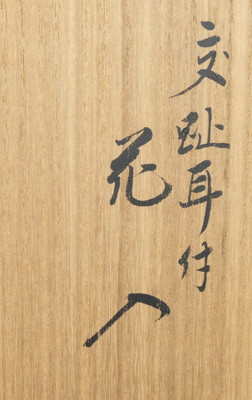 交趾耳付
花入